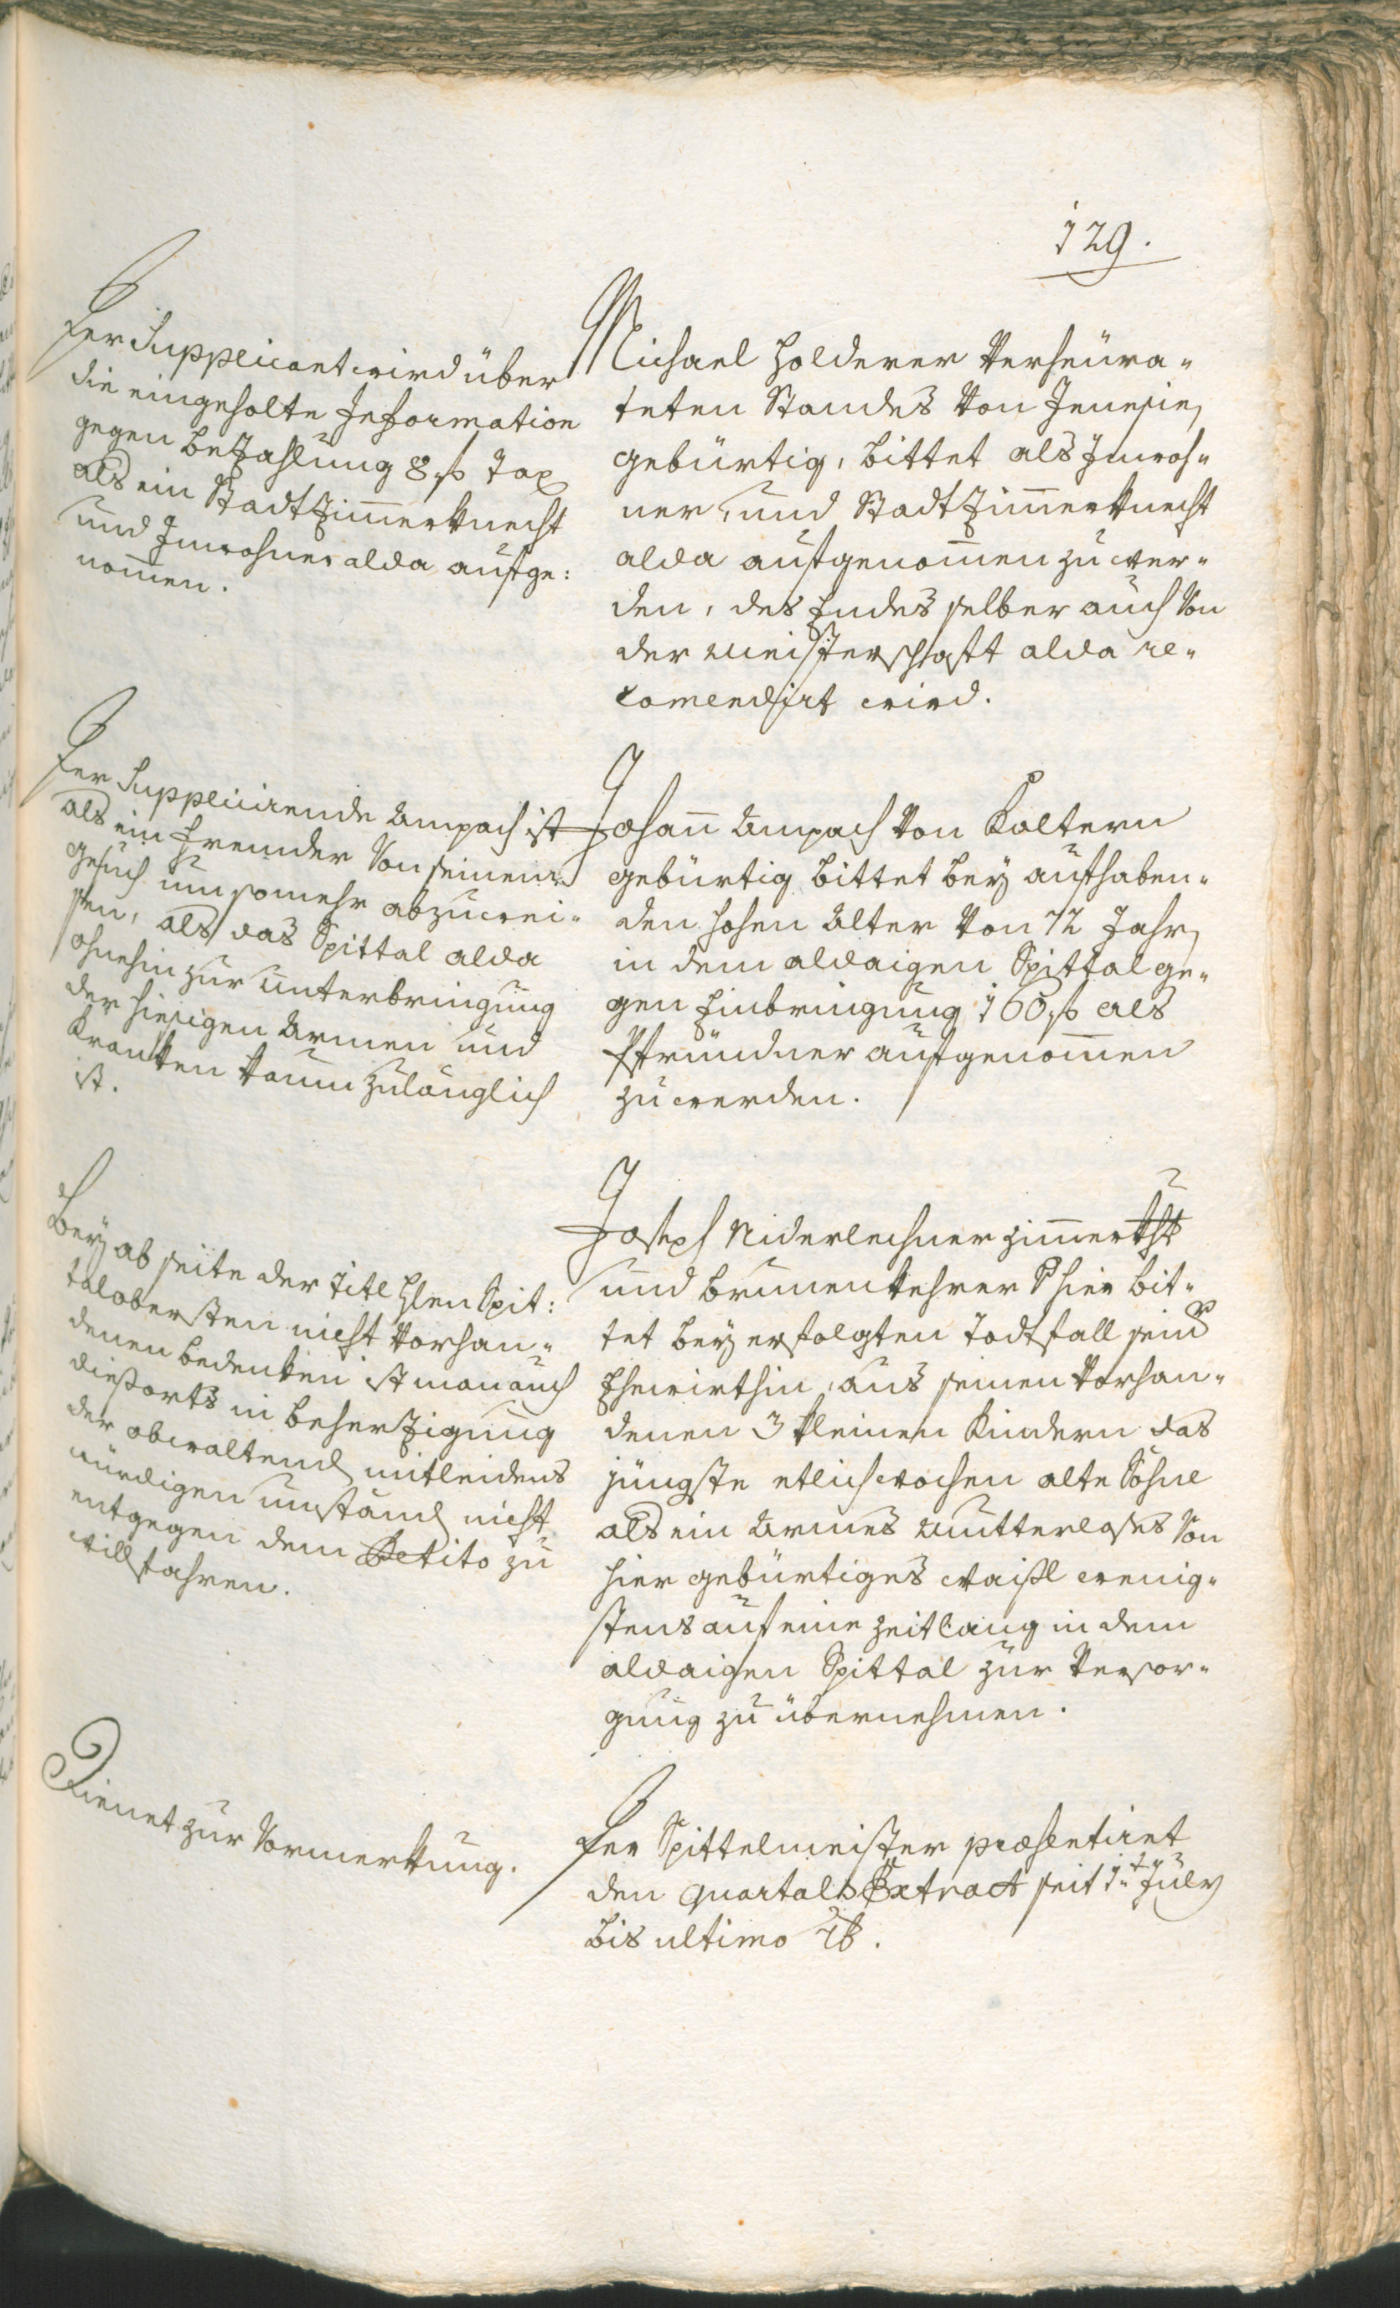 129.
Der Supplicant wird über
die eingeholte Information
gegen Bezahlung 8 f Tax
als ein Stadtzimerknecht
und Innwohner alda aufge:
nomen.
Michael Holderer verheüra-
teten Standes von Jenesien
gebürtig, bittet als Innwoh-
ner, und Stadtzimerknecht
alda aufgenomen zu wer-
den, des Endes selber auch von
der Meisterschafft alda re-
comendirt wird.
Der Supplicirende Ampach ist
als ein fremder von seinem
gesuch um somehr abzuwei-
sen, als das Spittal alda
ohnehin zur unterbringung
der hiesigen Armen und
Kranken kaum zulänglich
ist.
Johann Ampach von Kaltern
gebürtig bittet bey aufhaben-
den hohen Alter von 72 Jahr
in dem aldaigen Spittal ge-
gen Einbringung 160 f als
Pfründner aufgenomen
zu werden.
Bey ab seite der Titl Hlen Spit:
talobersten nicht vorhan-
denen bedenken ist man auch
dießorts in beherzigung
der obwaltend mitleidens
würdigen umständ nicht
entgegen dem Petito zu
willfahren.
Joseph Niderlechner Zimerkht
und Brunnenkehrer hier bit-
tet bey erfolgten Todtfall seinr
Ehewirthin, aus seinen vorhan-
denen 3 kleinen Kindern das
jüngste etlich wochen alte Söhnl
als ein Armes Mutterloses von
hier gebürtiges waißl wenig-
stens auf eine Zeitlang in dem
aldaigen Spittal zur versor-
gung zu übernehmen.
Dienet zur Vormerkung.
Der Spittelmeister præsentiret
den Quartals Extract seit 1.t July
bis ultimo 7b.